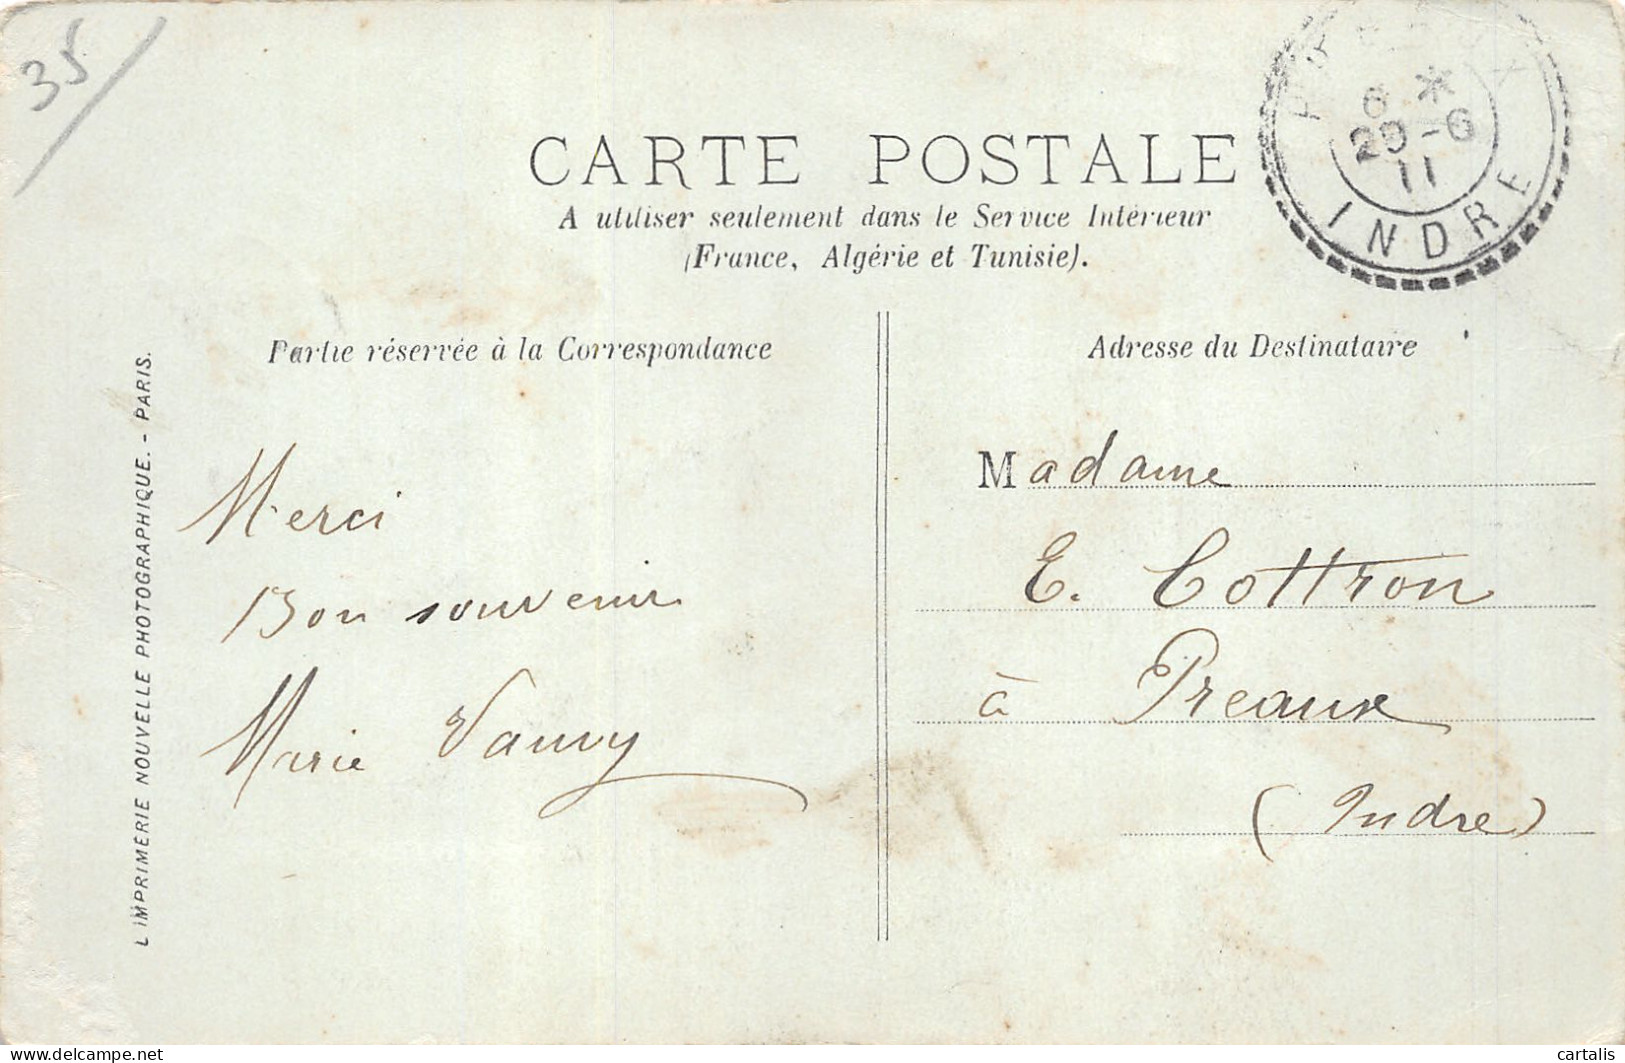 35
CARTE POSTALE
A utiliser seulement dans le Service Intérieur
(France, Algérie et Tunisie).
6 *
29-6
11
INDRE
Partie réservée à la Correspondance
Adresse du Destinataire
L'IMPRIMERIE NOUVELLE PHOTOGRAPHIQUE. - PARIS.
Merci
Bon souvenir
Marie
Madame
E. Cottron
à Preaux
(Indre)
delcampe.net
cartalis